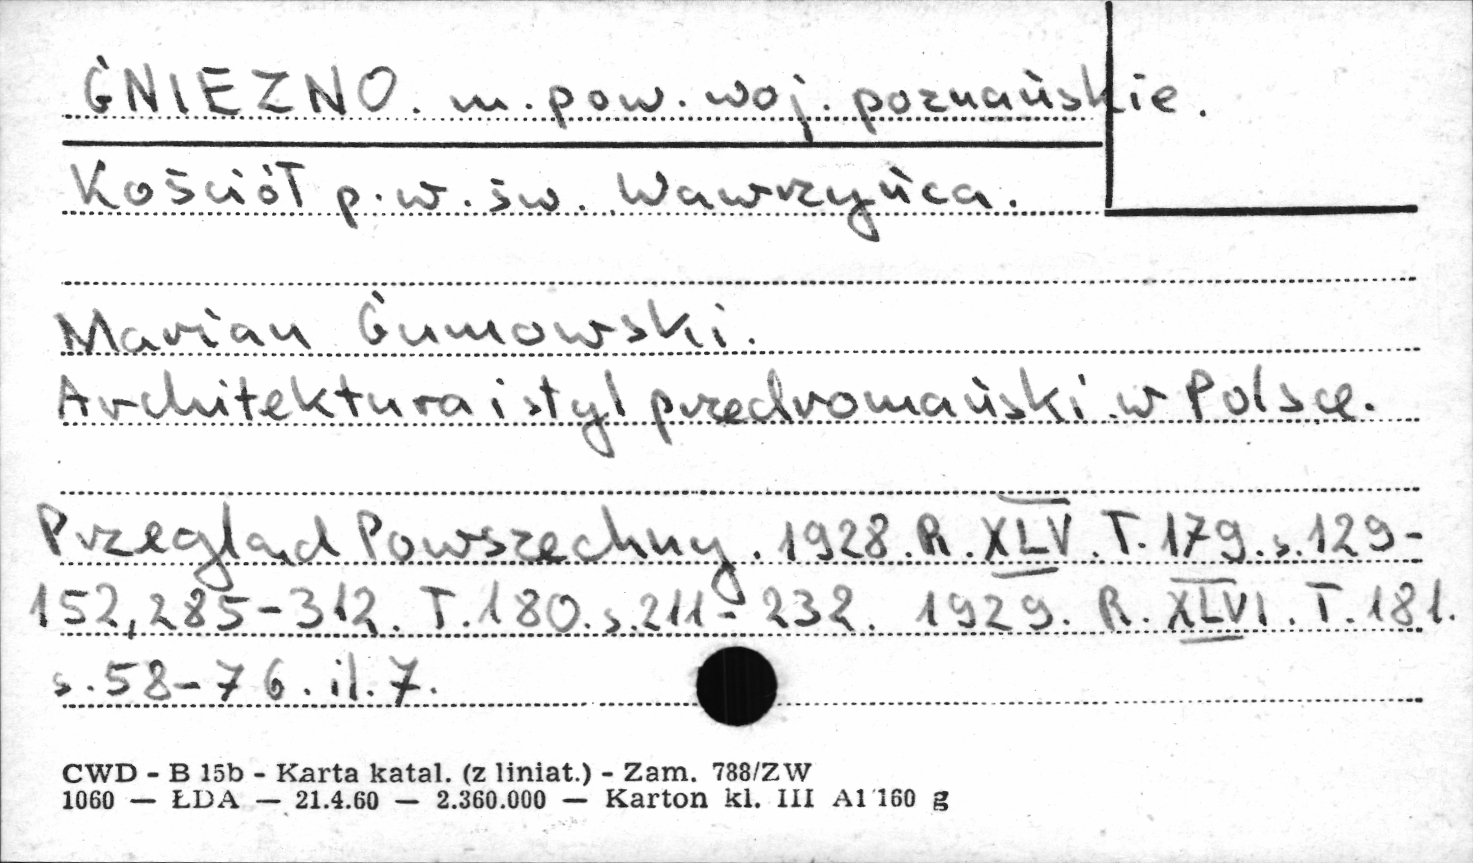 GNIEZNO. m. pow. woj. poznańskie.
Kościół p. w. św. Wawrzyńca.
Marian Gumowski.
Architektura i styl przedromański w Polsce.
Przegląd Powszechny. 1928. R. XLV. T. 179. s. 129-
152, 285-312. T. 180. s. 211-232. 1929. R. XLVI. T. 181.
s. 58-76. il. 7.
CWD - B 15b - Karta katal. (z liniat.) - Zam. 788/ZW
1060 — ŁDA — 21.4.60 — 2.360.000 — Karton kl. III A1 160 g